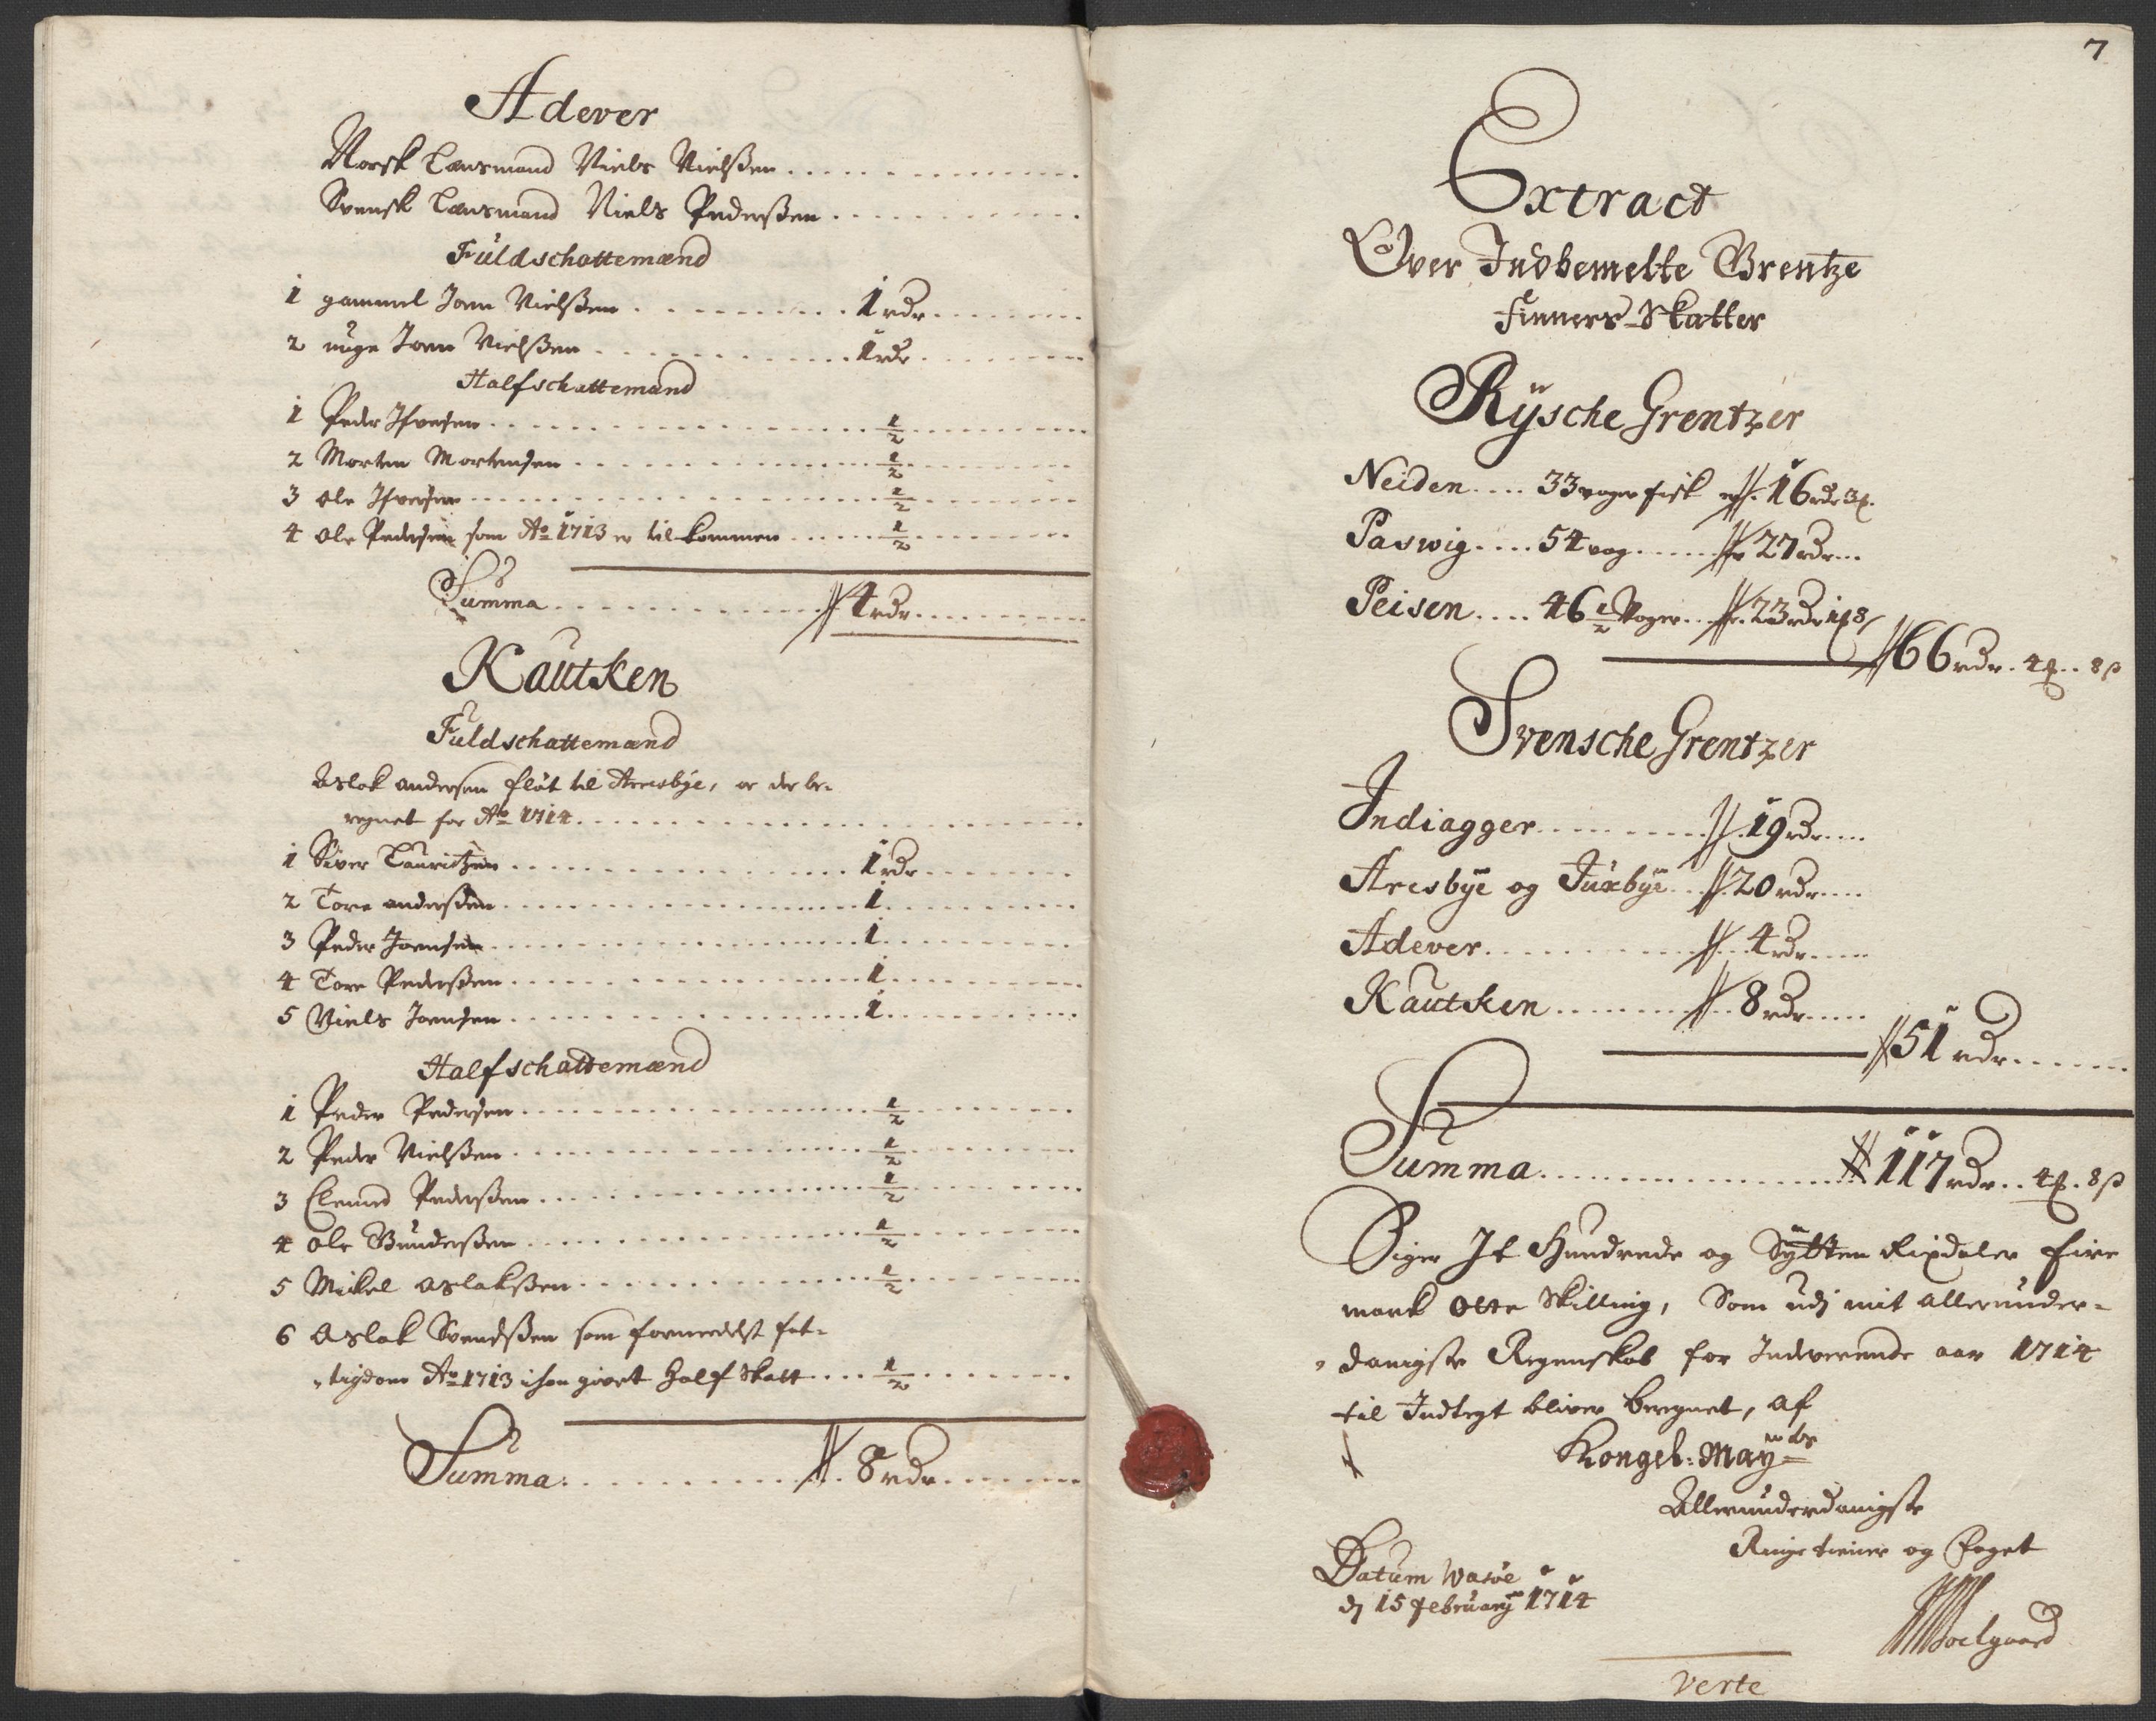 Adever
Norsk Lensmand Niels Nielsßen
Svensk Lensmand Niels Pedersßen
Fuldschattemænd
1 gammel Joen Nielsßen 1 rdr
2 unge Joen Nielsßen 1 rdr
Halfschattemænd
1 Peder Ifversen ½
2 Morten Mortensen ½
3 Ole Ifversen ½
4 Ole Pedersen som Ao 1713 er tilkommen ½
Summa 4 rdr
Kautken
Fuldschattemænd
Aslak Andersen fløt til Aresbÿe, er der be-
regnet for Ao 1714
1 Siver Lauritzen 1 rdr
2 Tore Andersßen 1
3 Peder Joensen 1
4 Tore Pedersßen 1
5 Niels Joensen 1
Halfschattemænd
1 Peder Pedersen ½
2 Peder Nielsßen ½
3 Clemed Pedersßen ½
4 Ole Gundersßen ½
5 Mikel Aslaksßen ½
6 Aslak Svendsßen som formedelst fat-
tigdom Ao 1713 ichon givet Half Skatt ½
Summa 8 rdr
7
Extract
Over Indbemelte Grentze
Finners Skatter
Rÿsche Grentzer
Neiden 33 voger fisk er 16 rdr 3 ƒ
Paswig 54 vog er 27 rdr
Peisen 46½ Voger er 23 rdr 1 ƒ 8
66 rdr 4 ƒ 8 ß
Svensche Grentzer
Indiagger 19 rdr
Aresbÿe og Juxbÿe 20 rdr
Adever 4 rdr
Kautken 8 rdr
51 rdr
Summa 117 rdr 4 ƒ 8 ß
Siger It Hundrede og Sÿtten Rixdaler fire
mark otte Skilling, Som udj mit allerunder-
danigste Regenskab for Indeverende aar 1714
til Indtegt bliver beregnet, af
Kongel: Mayts
Allerunderdanigste
Ringe tiener og Foget
Datum Wasöe
dj 15 februarÿ 1714
Soelgaard
Verte